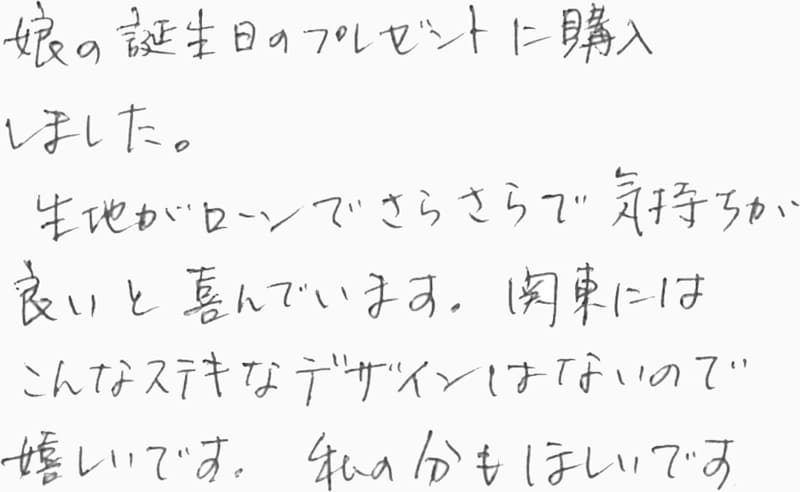 娘の誕生日のプレゼントに購入
しました。
生地がローンでさらさらで気持ちが
良いと喜んでいます。関東には
こんなステキなデザインはないので
嬉しいです。私の分もほしいです